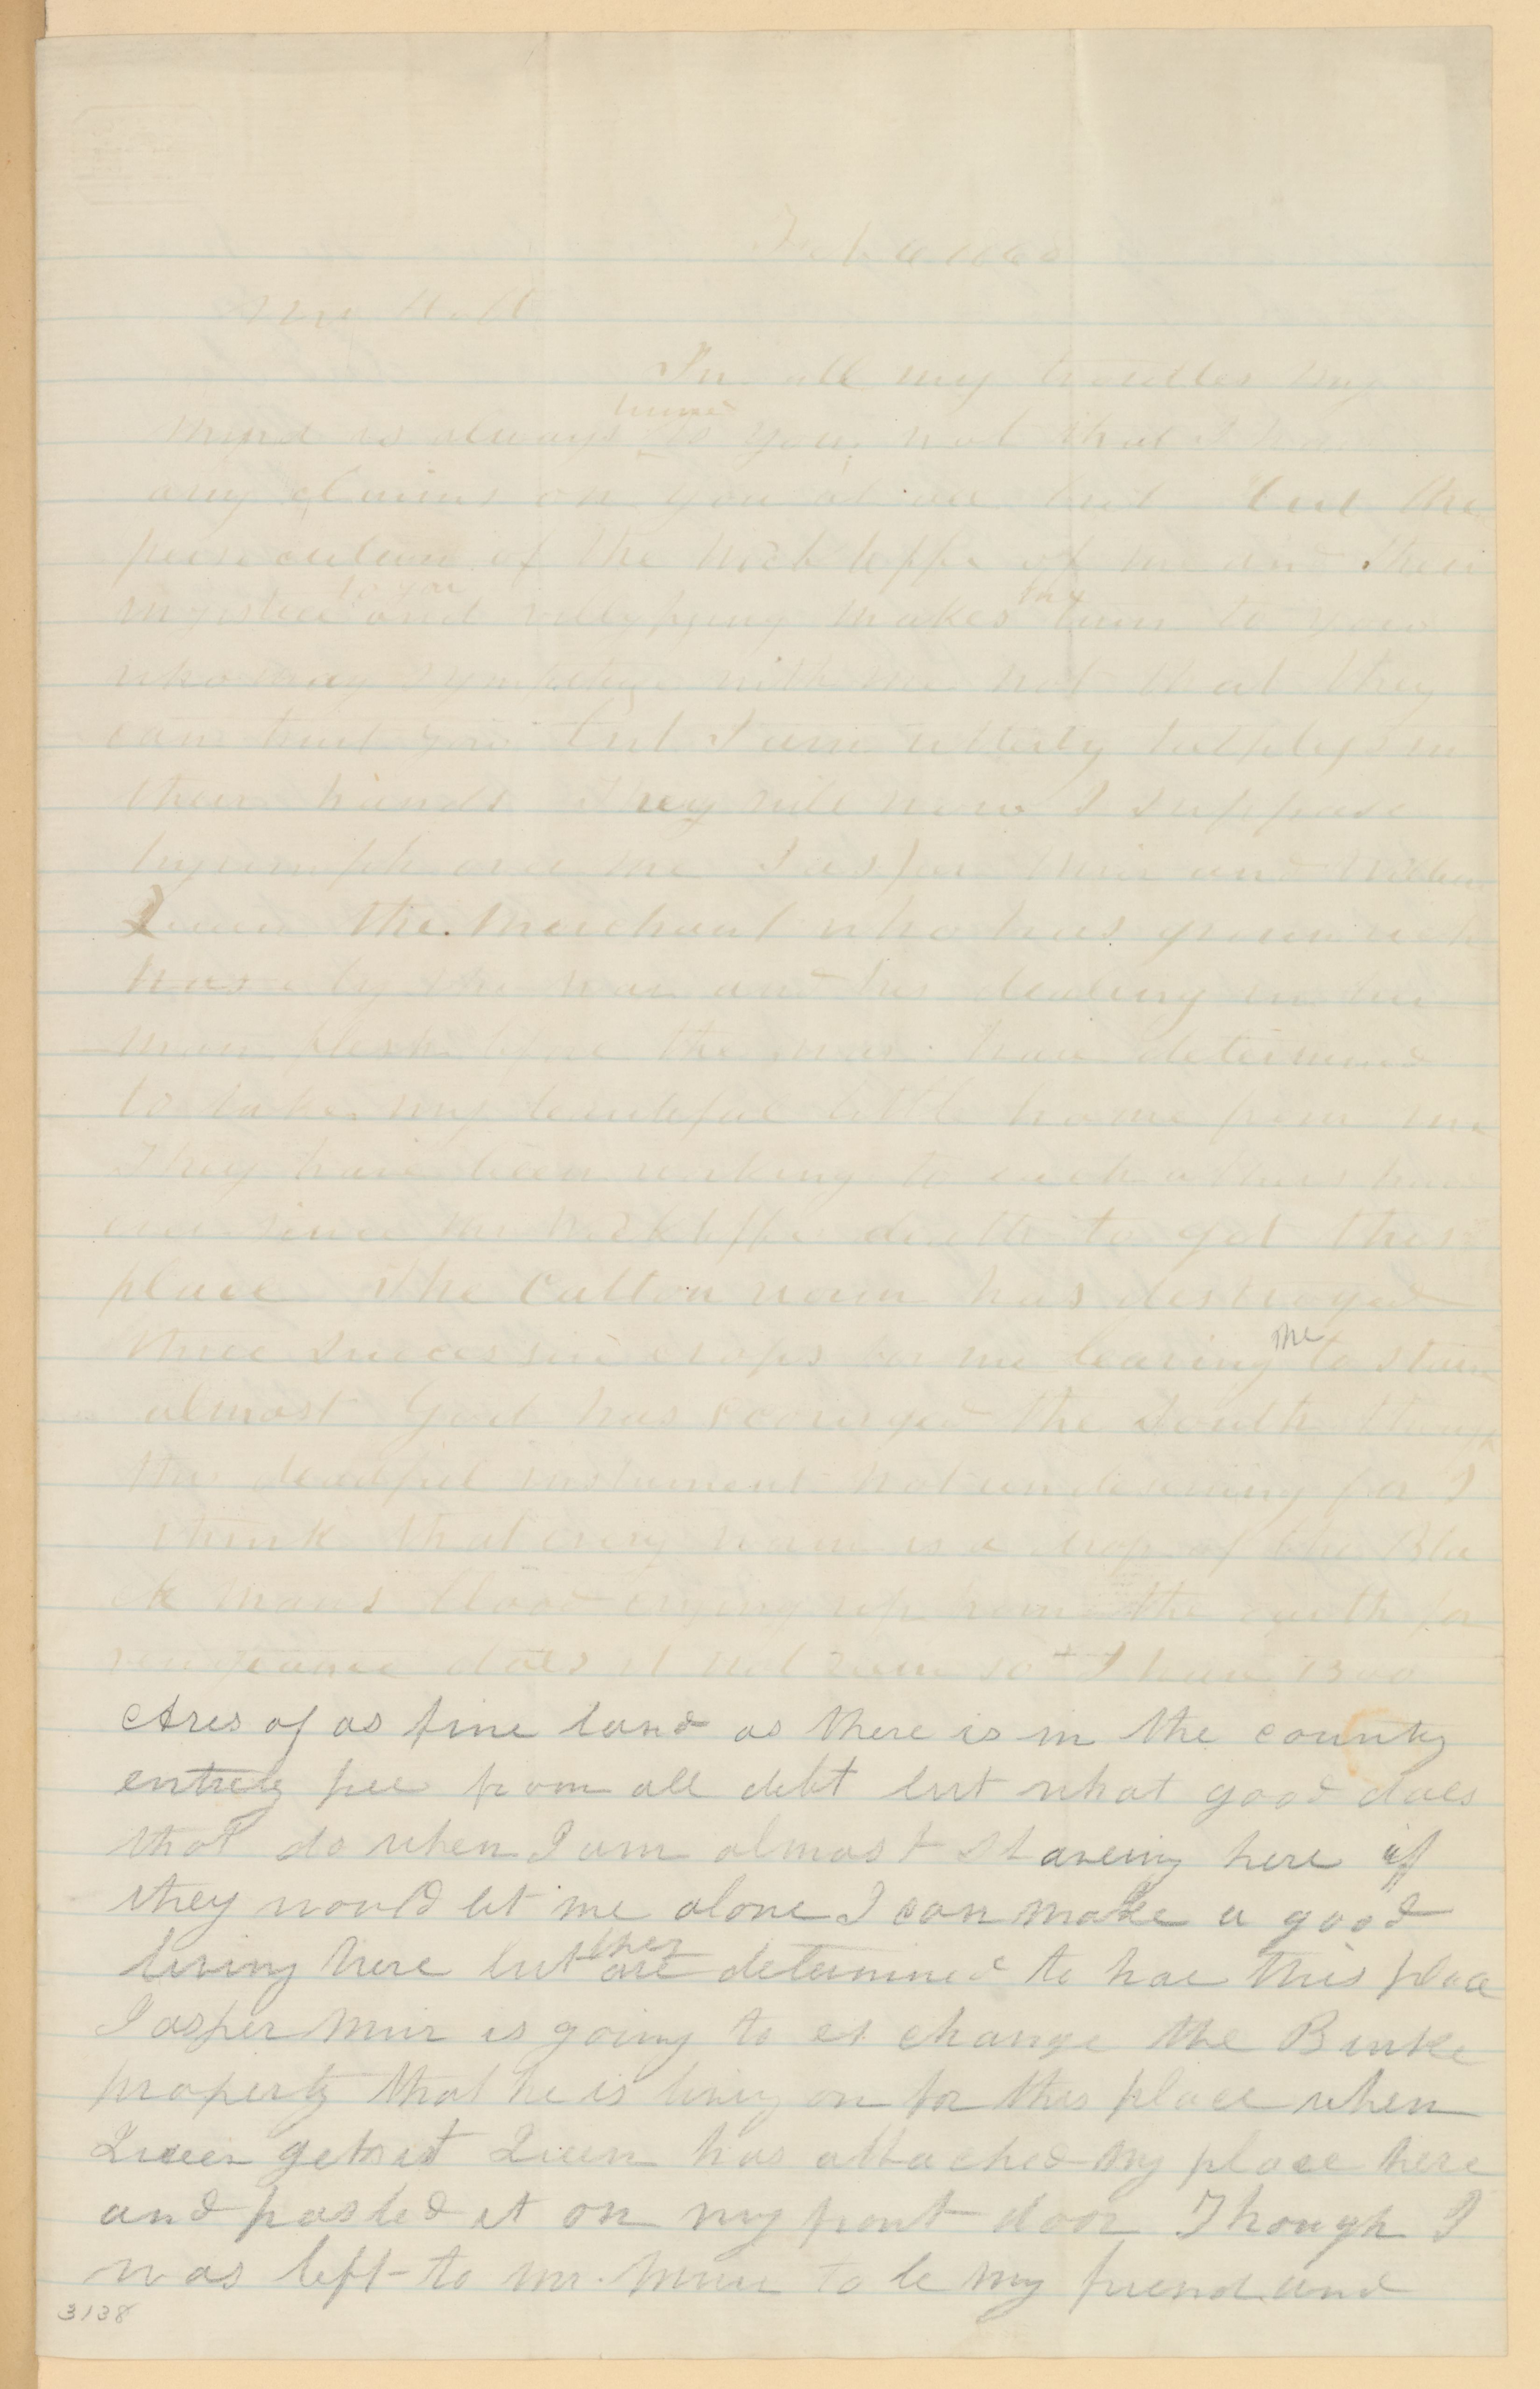 Feb 6
Mr Holt
In all my troubles my
turned
mind is always to you not that I have
any claims on you at all but but the
of the Wickliffe of me and their
to you
and makes me turn to you
who may sympathize with me not that they
can hurt you but I am utterly helpless in
their hands They will now I suppose
over me Jasper Muir and
Queen the Merchant who has grown rich
by the war and his dealing in hu
man flesh before the war have determined
to take my beautiful little home from me
They have been working to each others
ever since Mr Wickliffe death to get this
place The Cotton worm has destroyed
the
three successive crops for me leaving to starve
almost God has scourged the South though
this instrument not undeserving for I
think that every worm is a drop of the Bla
ck mans blood crying up from the earth for
vengeance does it not seem so I have 1300
Acres of as fine land as there is in the county
entirely free from all debt but what good does
that do when I am almost staveing here if
they would let me alone I can make a good
they
living here but are determined to hae this place
Jasper Muir is going to exchange the Burke
property that he is living on for this place when
Queen gets it Queen has attached my place here
and pasted it on my front door Though I
was left to mr. Muir to be my friend and
3138